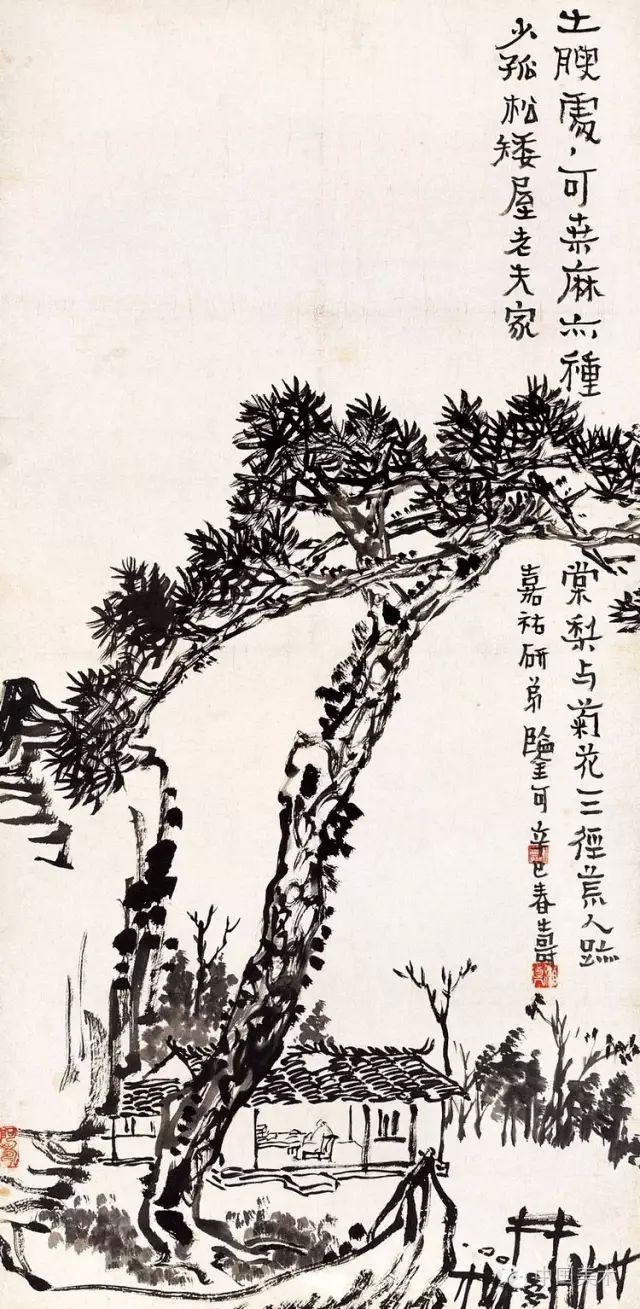 土腴處〻可桒麻亦種
棠梨与菊花三徑荒人跡
少孤松矮屋老夫家
嘉祐研弟鑒可辛巳春壽
中国美术